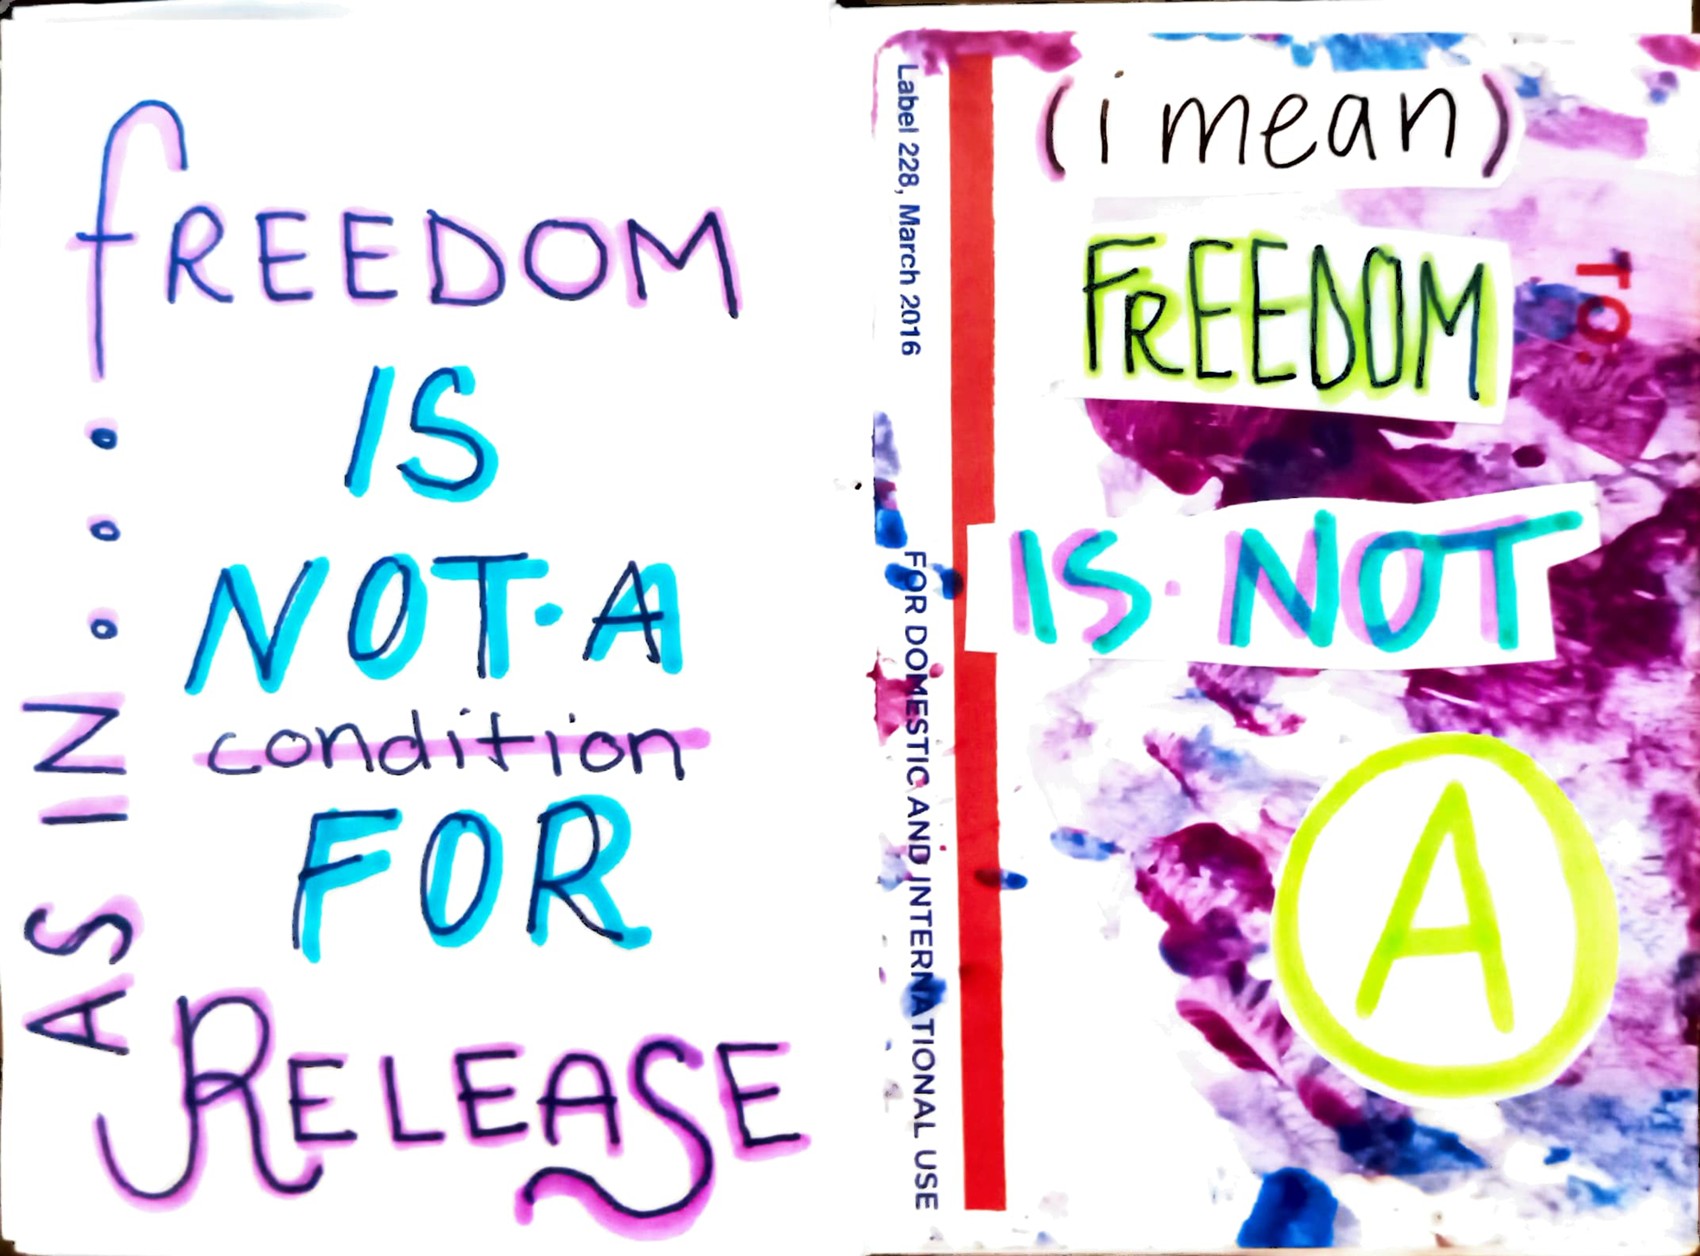 fREEDOM
IS
NOT·A
condition
FOR
RELEASE
AS IN....
Label 228, March 2016
FOR DOMESTIC AND INTERNATIONAL USE
TO:
(i mean)
FREEDOM
IS·NOT
A